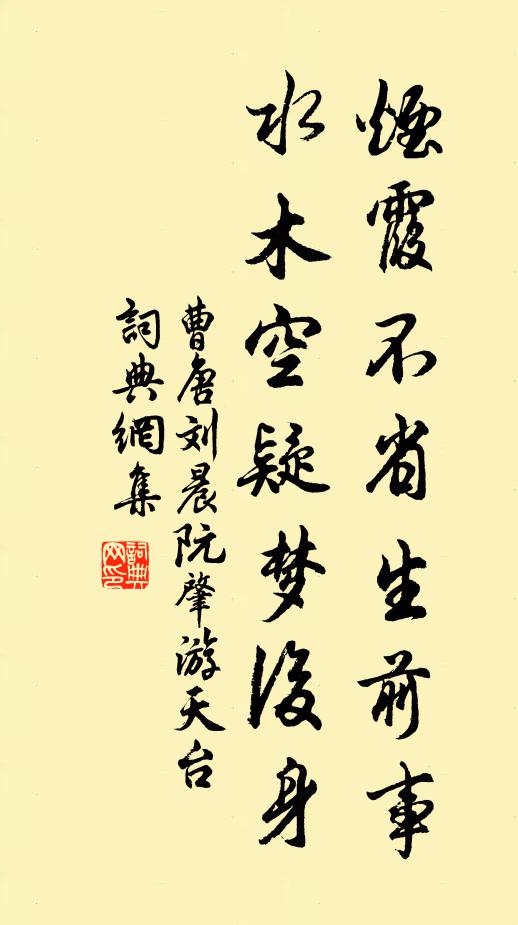 煙霞不省生前事
水木空疑梦後身
曹唐刘晨阮肇游天台
詞典網集
詞典网印